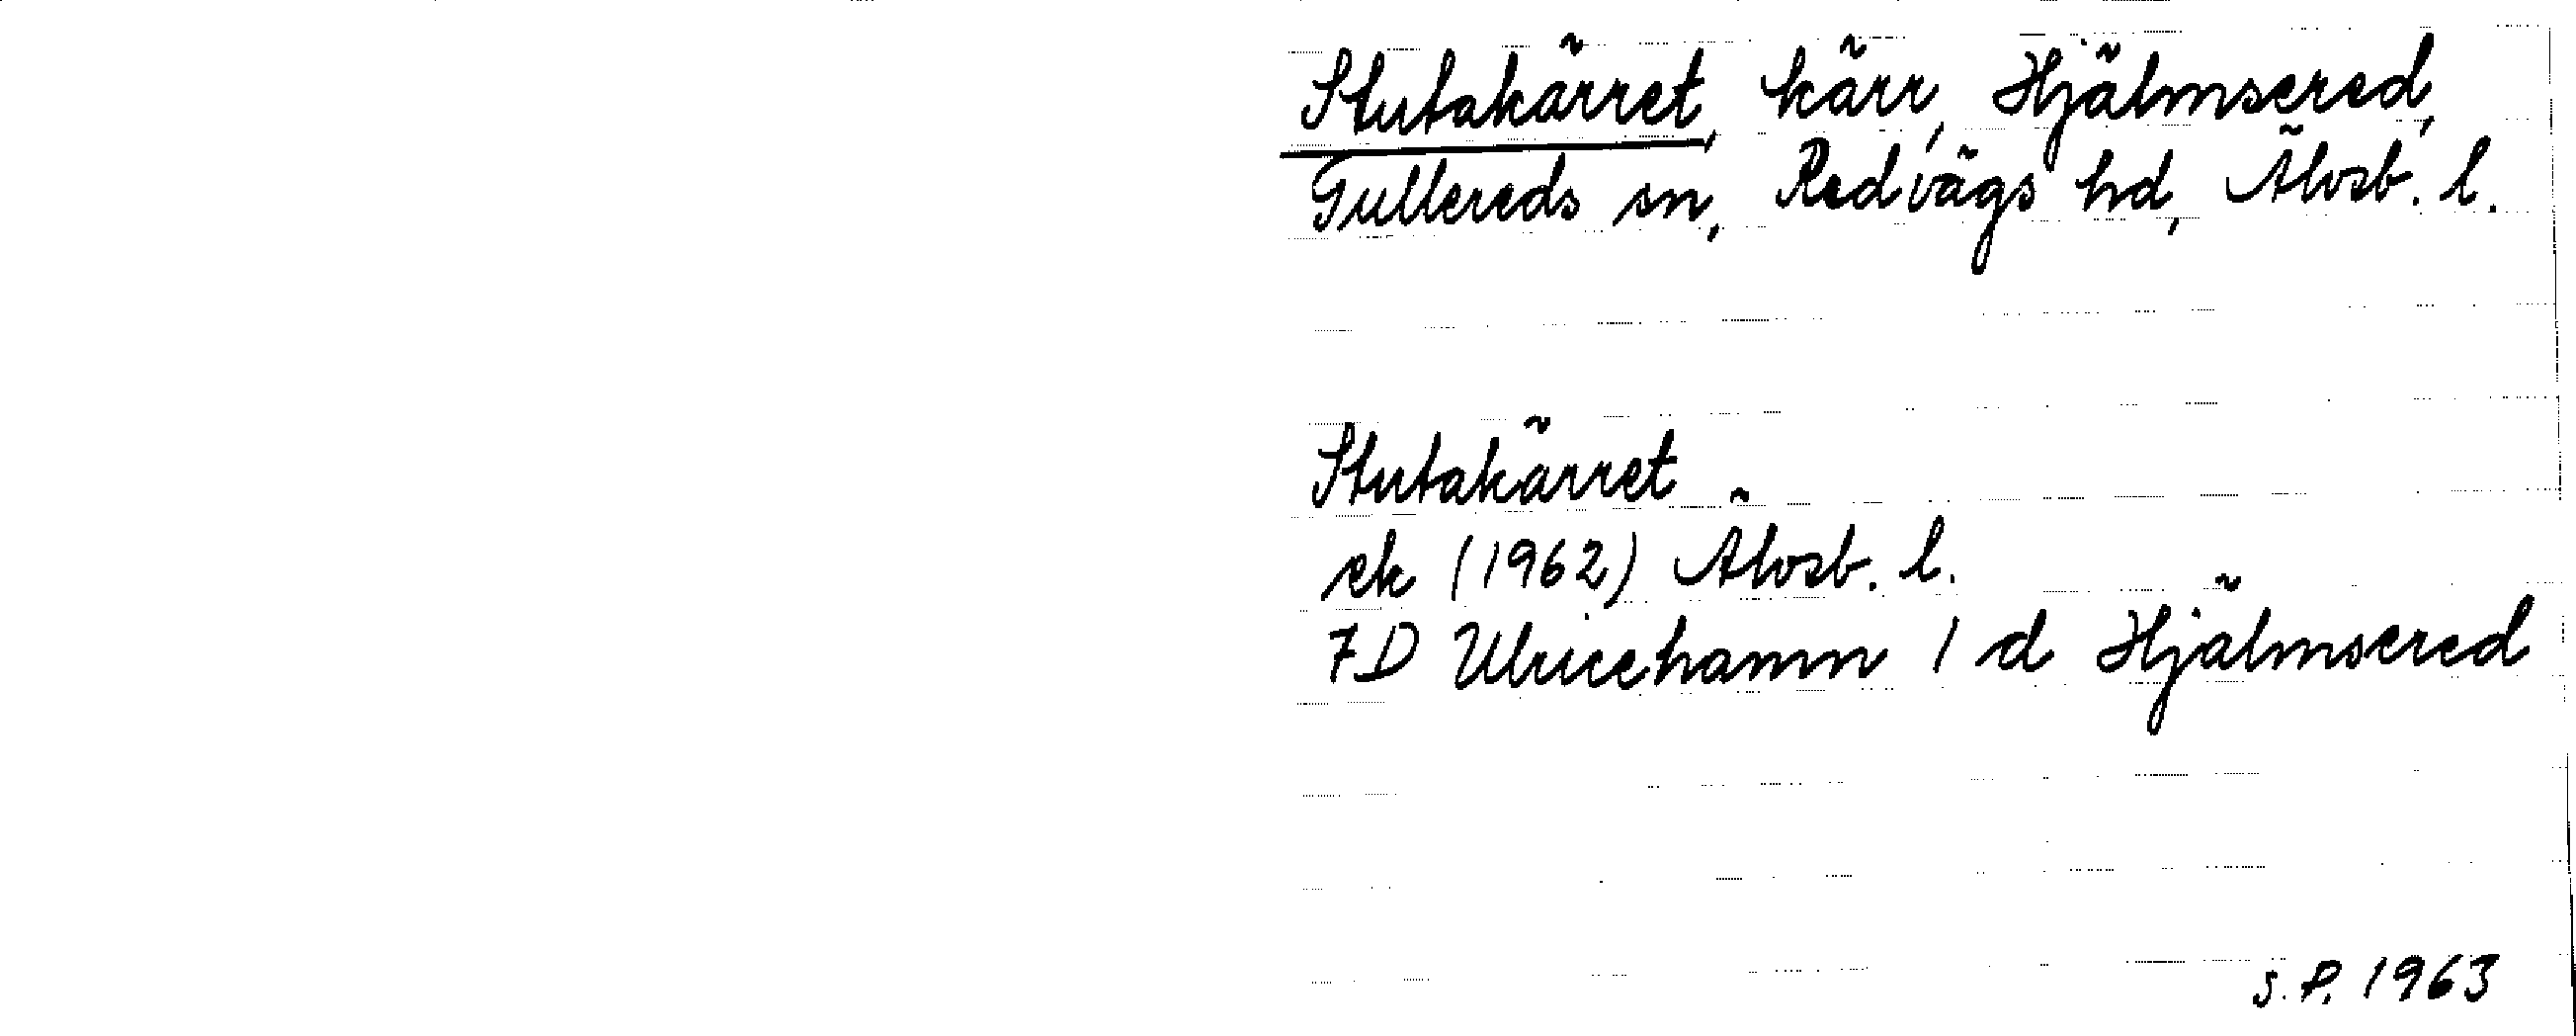 Stutakärret, kärr, Hjälmsered,
Gullereds sn, Redvägs hd, Älvsb. l.
Stutakärret
ek (1962) Älvsb. l.
7D Ulricehamn 1 d Hjälmsered
S.P. 1963